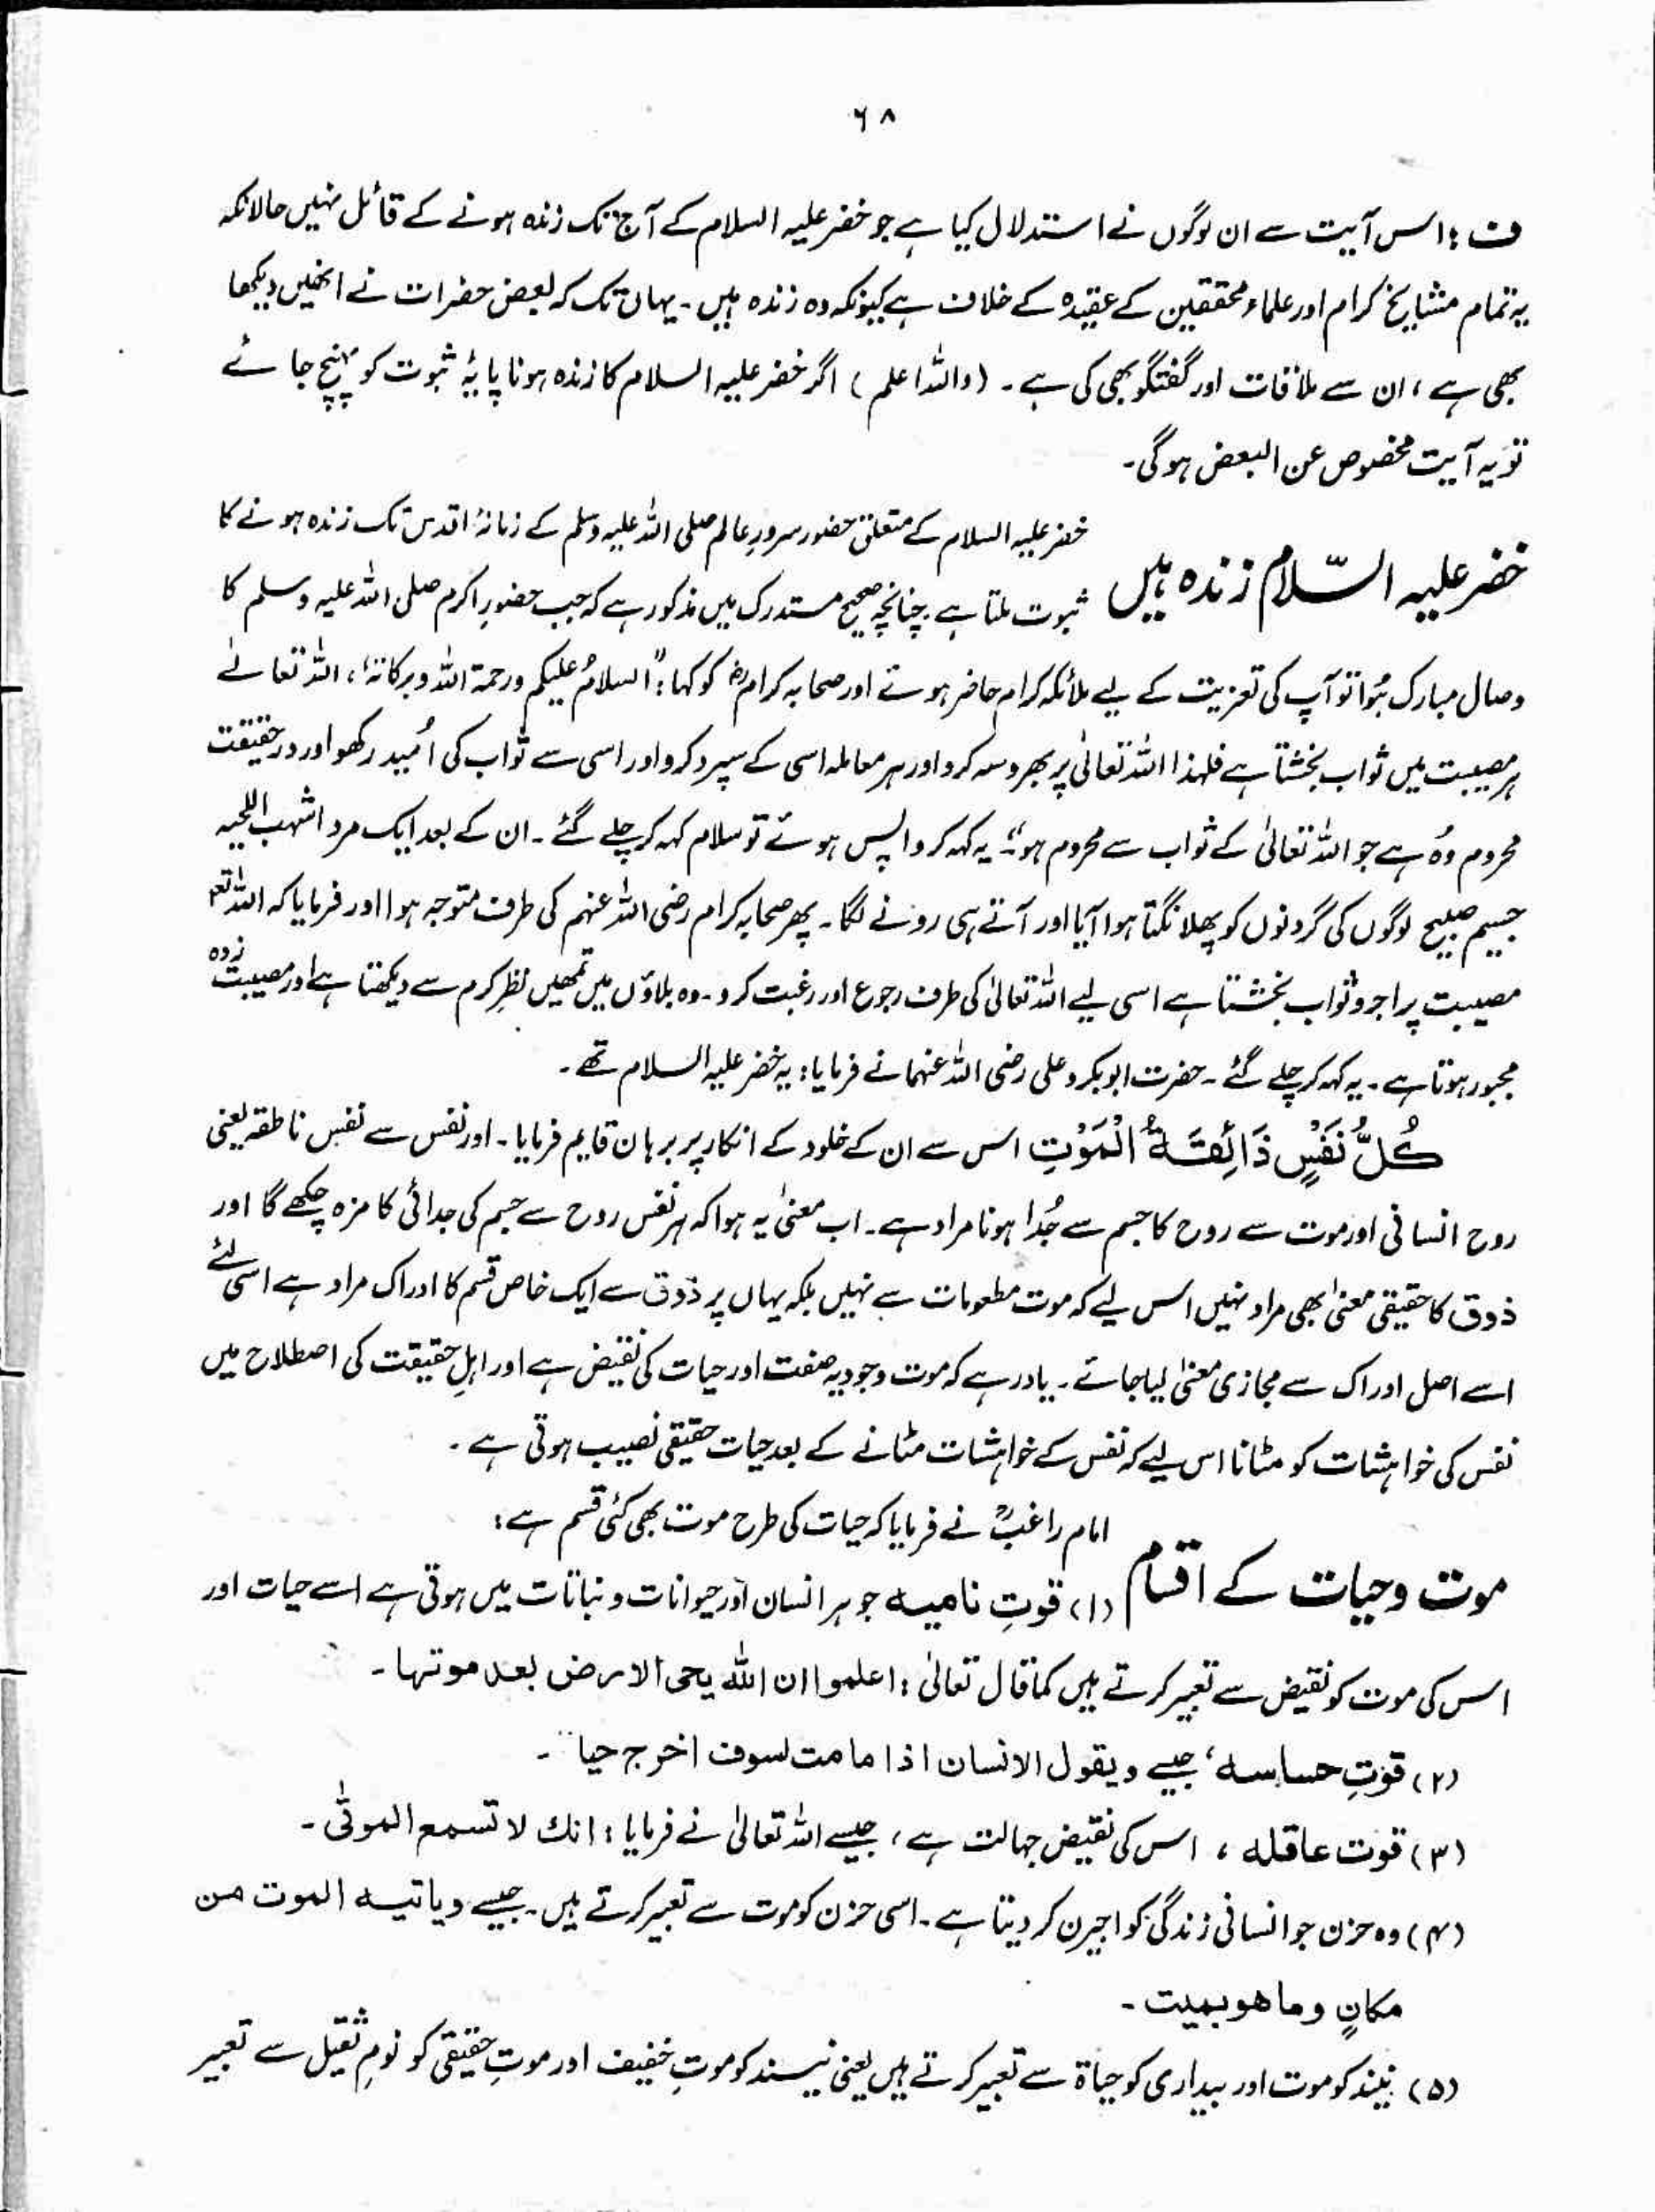 ۶۸
ف : اس آیت سے ان لوگوں نے استدلال کیا ہے جو خضر علیہ السلام کے آج تک زندہ ہونے کے قائل نہیں حالانکہ
یہ تمام مشایخ کرام اور علماء محققین کے عقیدہ کے خلاف ہے کیونکہ وہ زندہ ہیں۔ یہاں تک کہ بعض حضرات نے انھیں دیکھا
بھی ہے، ان سے ملاقات اور گفتگو بھی کی ہے۔ (واللہ اعلم) اگر خضر علیہ السلام کا زندہ ہونا پایۂ ثبوت کو پہنچ جائے
تو یہ آیت مخصوص عن البعض ہوگی۔
خضر علیہ السلام کے متعلق حضور سرورِ عالم صلی اللہ علیہ وسلم کے زمانۂ اقدس تک زندہ ہونے کا
خضر علیہ السّلام زندہ ہیں
ثبوت ملتا ہے چنانچہ صحیح مستدرک میں مذکور ہے کہ جب حضورِ اکرم صلی اللہ علیہ وسلم کا
وصال مبارک ہُوا تو آپ کی تعزیت کے لیے ملائکہ کرام حاضر ہوئے اور صحابہ کرامؓ کو کہا: "السلامُ علیکم ورحمۃ اللہ وبرکاتہٗ، اللہ تعالےٰ
ہر مصیبت میں ثواب بخشتا ہے فلہذا اللہ تعالیٰ پر بھروسہ کرو اور ہر معاملہ اسی کے سپرد کرو اور اسی سے ثواب کی اُمید رکھو اور درحقیقت
محروم وُہ ہے جو اللہ تعالیٰ کے ثواب سے محروم ہو"۔ یہ کہہ کر واپس ہوئے تو سلام کہہ کر چلے گئے۔ ان کے بعد ایک مرد اشہب اللحیہ
جسیم صبیح لوگوں کی گردنوں کو پھلانگتا ہوا آیا اور آتے ہی رونے لگا۔ پھر صحابہ کرام رضی اللہ عنہم کی طرف متوجہ ہوا اور فرمایا کہ اللہ تعہ
مصیبت پر اجر و ثواب بخشتا ہے اسی لیے اللہ تعالیٰ کی طرف رجوع اور رغبت کرو۔ وہ بلاؤں میں تمھیں نظرِ کرم سے دیکھتا ہے اور مصیبت زدہ
مجبور ہوتا ہے۔ یہ کہہ کر چلے گئے۔ حضرت ابوبکر و علی رضی اللہ عنہما نے فرمایا: یہ خضر علیہ السلام تھے۔
كُلُّ نَفْسٍ ذَآئِقَةُ الْمَوْتِ اس سے ان کے خلود کے انکار پر برہان قایم فرمایا۔ اور نفس سے نفسِ ناطقہ یعنی
روح انسانی اور موت سے روح کا جسم سے جُدا ہونا مراد ہے۔ اب معنیٰ یہ ہوا کہ ہر نفس روح سے جسم کی جدائی کا مزہ چکھے گا اور
ذوق کا حقیقی معنیٰ بھی مراد نہیں اس لیے کہ موت مطعومات سے نہیں بلکہ یہاں پر ذوق سے ایک خاص قسم کا ادراک مراد ہے اسی لئے
اسے اصل ادراک سے مجازی معنیٰ لیا جائے۔ یاد رہے کہ موت وجودیہ صفت اور حیات کی نقیض ہے اور اہلِ حقیقت کی اصطلاح میں
نفس کی خواہشات کو مٹانا اس لیے کہ نفس کے خواہشات مٹانے کے بعد حیات حقیقی نصیب ہوتی ہے۔
امام راغبؒ نے فرمایا کہ حیات کی طرح موت بھی کئی قسم ہے:
موت وحیات کے اقسام
(۱) قوتِ نامیہ جو ہر انسان اور حیوانات و نباتات میں ہوتی ہے اسے حیات اور
اس کی موت کو نقیض سے تعبیر کرتے ہیں کما قال تعالیٰ : اعلموا ان اللہ یحی الارض بعد موتہا۔
(۲) قوتِ حساسہ، جیسے ویقول الانسان اذا ما مت لسوف اخرج حیا۔
(۳) قوت عاقلہ، اس کی نقیض جہالت ہے، جیسے اللہ تعالیٰ نے فرمایا : انك لا تسمع الموتٰی۔
(۴) وہ حزن جو انسانی زندگی کو اجیرن کر دیتا ہے۔ اسی حزن کو موت سے تعبیر کرتے ہیں۔ جیسے ویاتیہ الموت من
مکانٍ وما ھو بمیت۔
(۵) نیند کو موت اور بیداری کو حیاۃ سے تعبیر کرتے ہیں یعنی نیند کو موتِ خفیف اور موتِ حقیقی کو نومِ ثقیل سے تعبیر